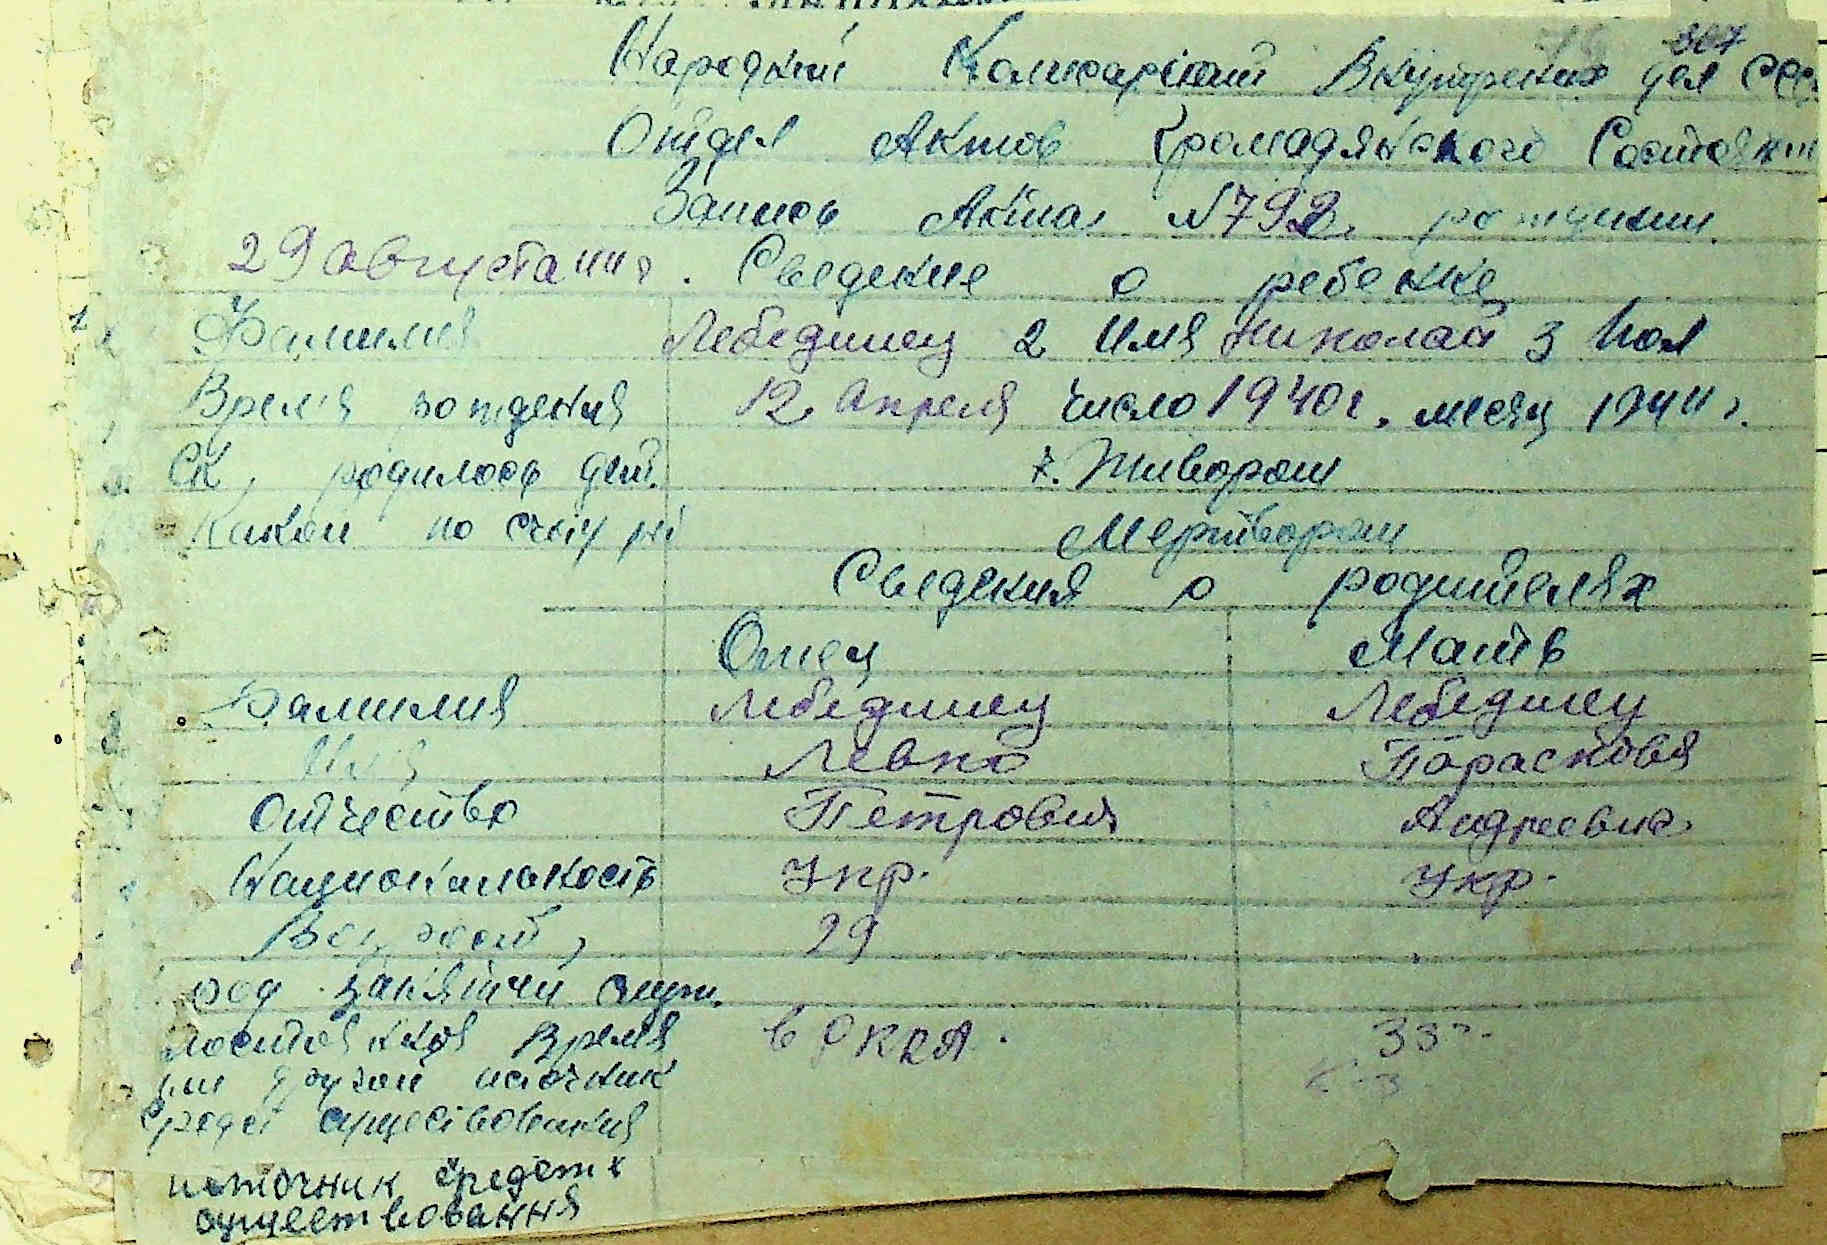 307
Народкий Комисариат Внутрених дел ССС
Отдел Актов Громадянского Состоян
Запись Акта №792 рождении
29 августа 44 г. Сведение о ребенке
Фамилия Лебединец 2 Имя Николай 3 Пол
Время рождения 12 Апреля число 1940 г. месяц 1944 г.
Ск. родилось дет. 7. Живорож
Какой по счету
Мертворож
Сведения о родителях
Отец Мать
Фамилия Лебединец Лебединец
Имя Левко Парасковья
Отчество Петрович Андреевна
Национальность Укр. Укр.
Возраст, 29
род занятий служ.
постоянная Время в РККА. 33 г.
или другой источник
средст существования
источник средств
существования